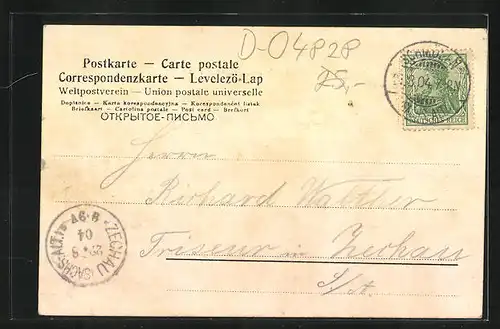 D-04828
25,-
Postkarte – Carte postale
Correspondenzkarte – Levelező-Lap
Weltpostverein – Union postale universelle
Dopisnice – Karta korespondencyjna – Korespondenční lístek
Briefkaart – Cartolina postale – Post card – Brefkort
ОТКРЫТОЕ-ПИСЬМО
Herrn
Richard
Friseur in Zechau
S/A.
ZECHAU (SACHS-ALT.)
04